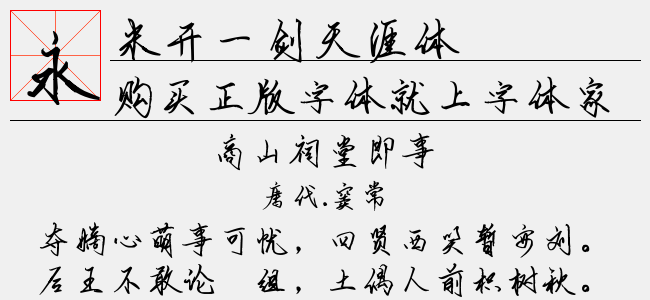 永
米开一剑天涯体
购买正版字体就上字体家
商山祠堂即事
唐代.窦常
夺嫡心萌事可忧，四贤西笑暂安刘。
后王不敢论 组，土偶人前枳树秋。